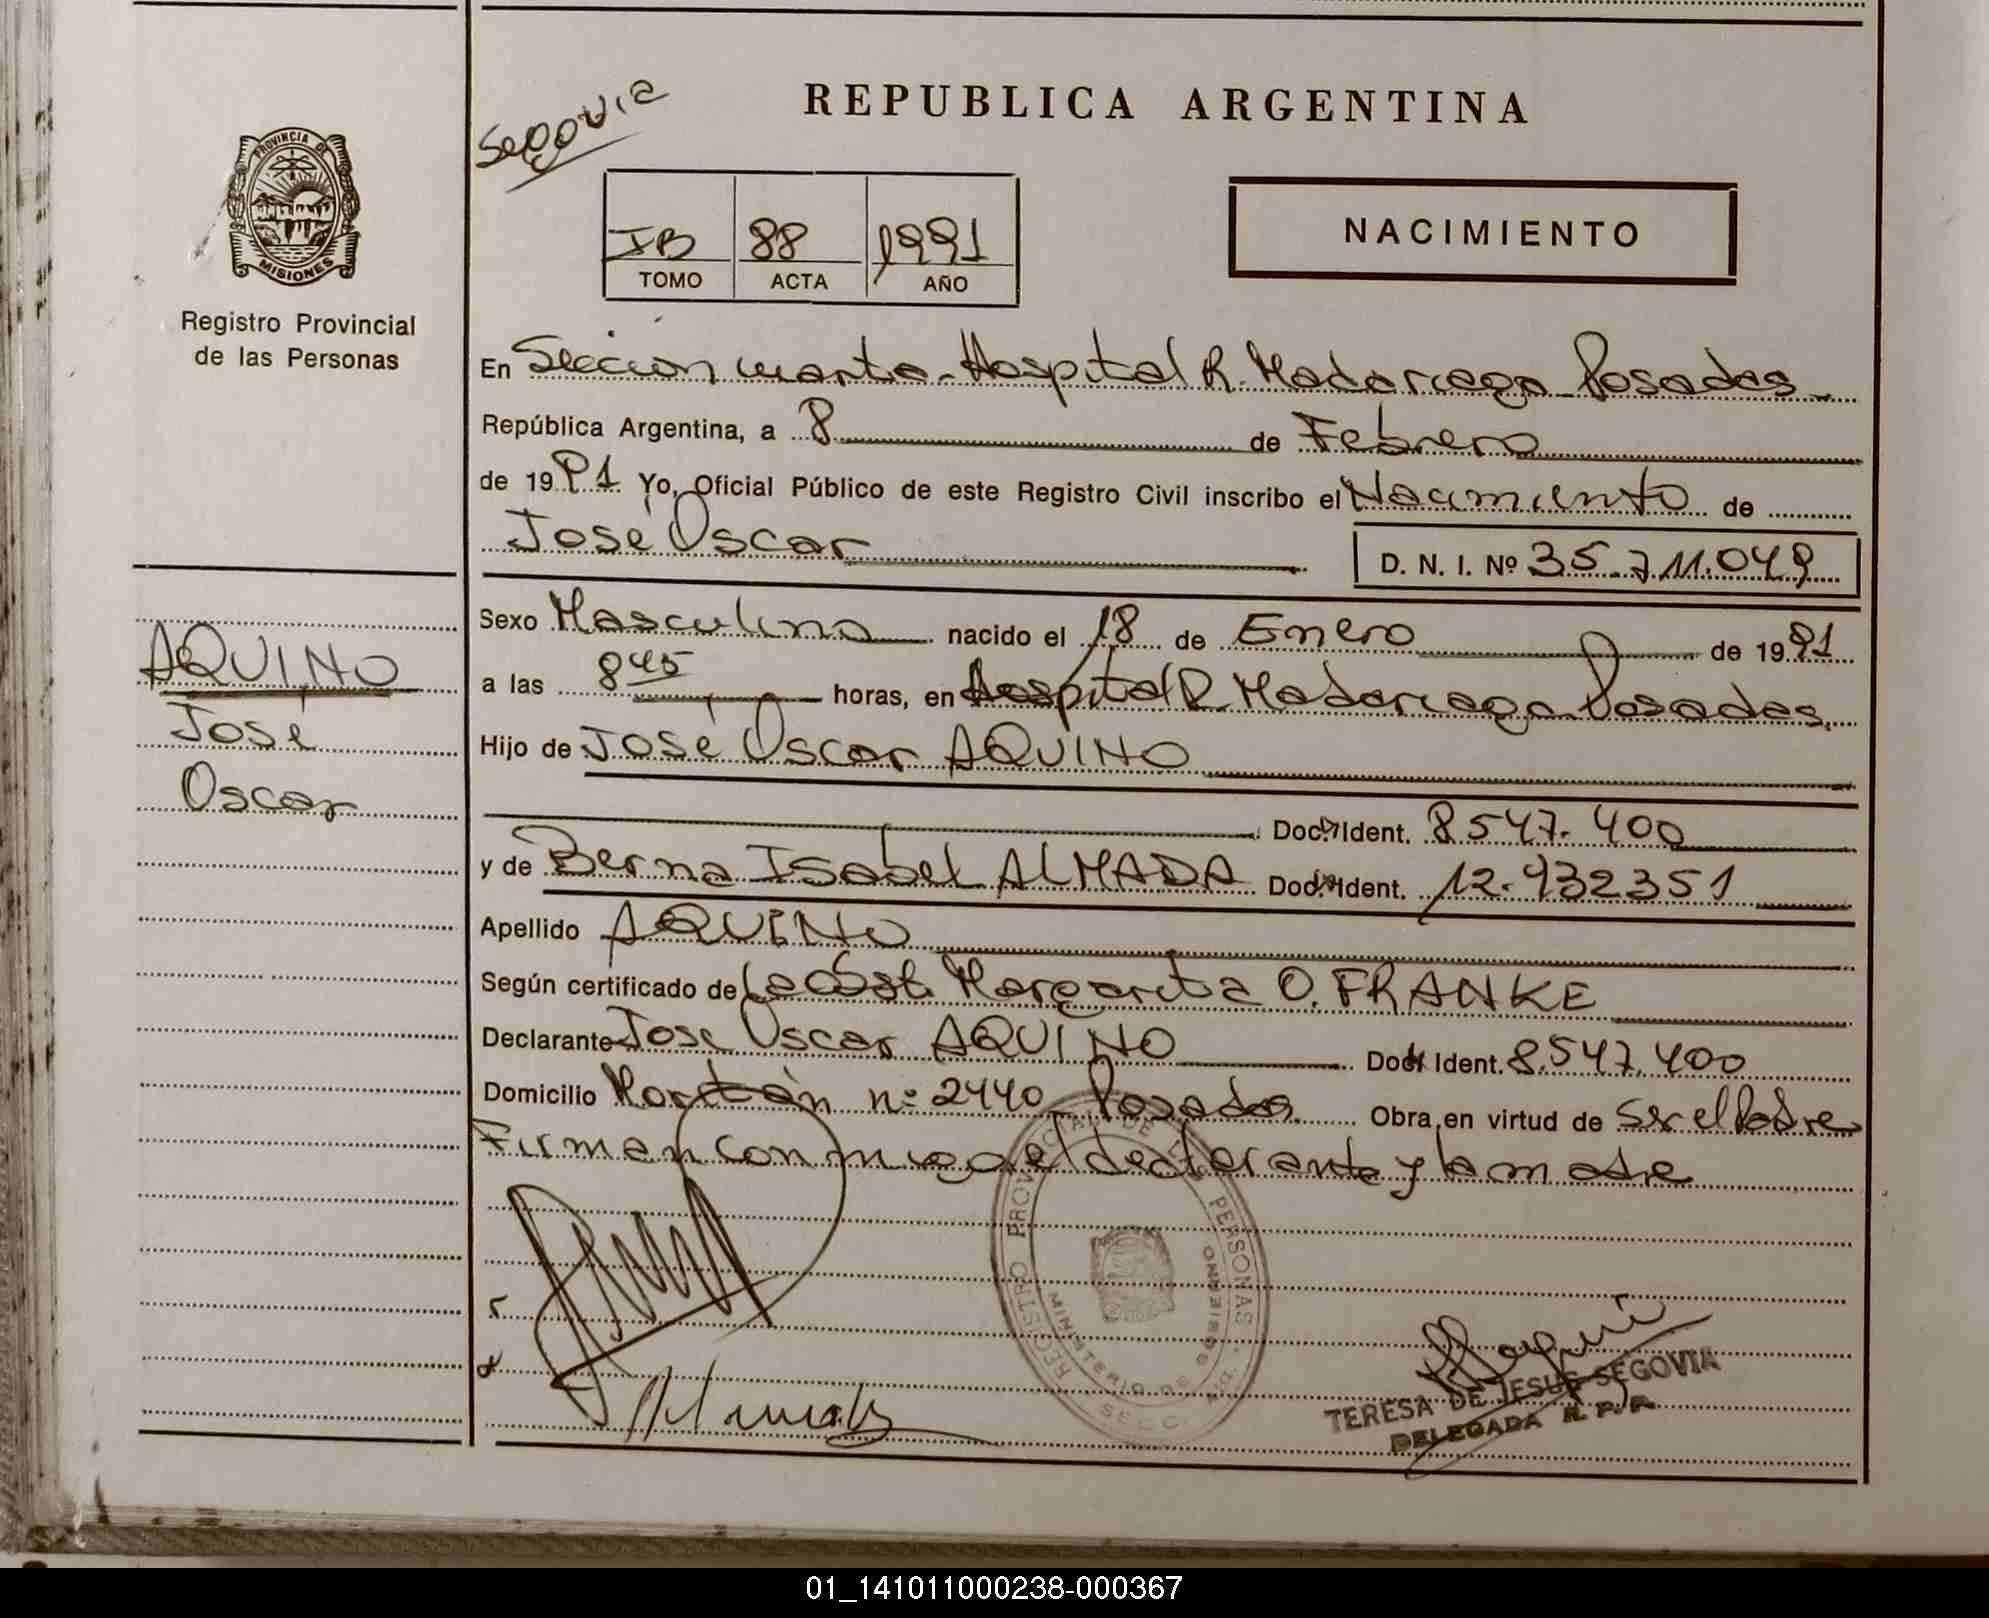 Segovia
REPUBLICA ARGENTINA
PROVINCIA DE
MISIONES
Registro Provincial
de las Personas
IB 88 1991
TOMO ACTA AÑO
NACIMIENTO
En Sección cuarta - Hospital R. Madariaga Posadas
República Argentina, a 8 de Febrero
de 1991 Yo, Oficial Público de este Registro Civil inscribo el Nacimiento de
José Oscar
D. N. I. Nº 35.711.049
Sexo Masculino nacido el 18 de Enero de 1991
a las 8 45 horas, en Hospital R. Madariaga Posadas.
Hijo de José Oscar AQUINO
Doc. Ident. 8.547.400
y de Berna Isabel ALMADA Doc. Ident. 12.932351
Apellido AQUINO
Según certificado de La Obst. Margarita O. FRANKE
Declarante José Oscar AQUINO Doc. Ident. 8.547.400
Domicilio nº 2440 Posadas. Obra en virtud de Ser el Padre
Firman conmigo el declarante y la madre
AQUINO
José
Oscar
REGISTRO PROVINCIAL DE LAS PERSONAS
MINISTERIO DE GOBIERNO
SECC.
TERESA DE JESUS SEGOVIA
DELEGADA R. P. P.
01_141011000238-000367